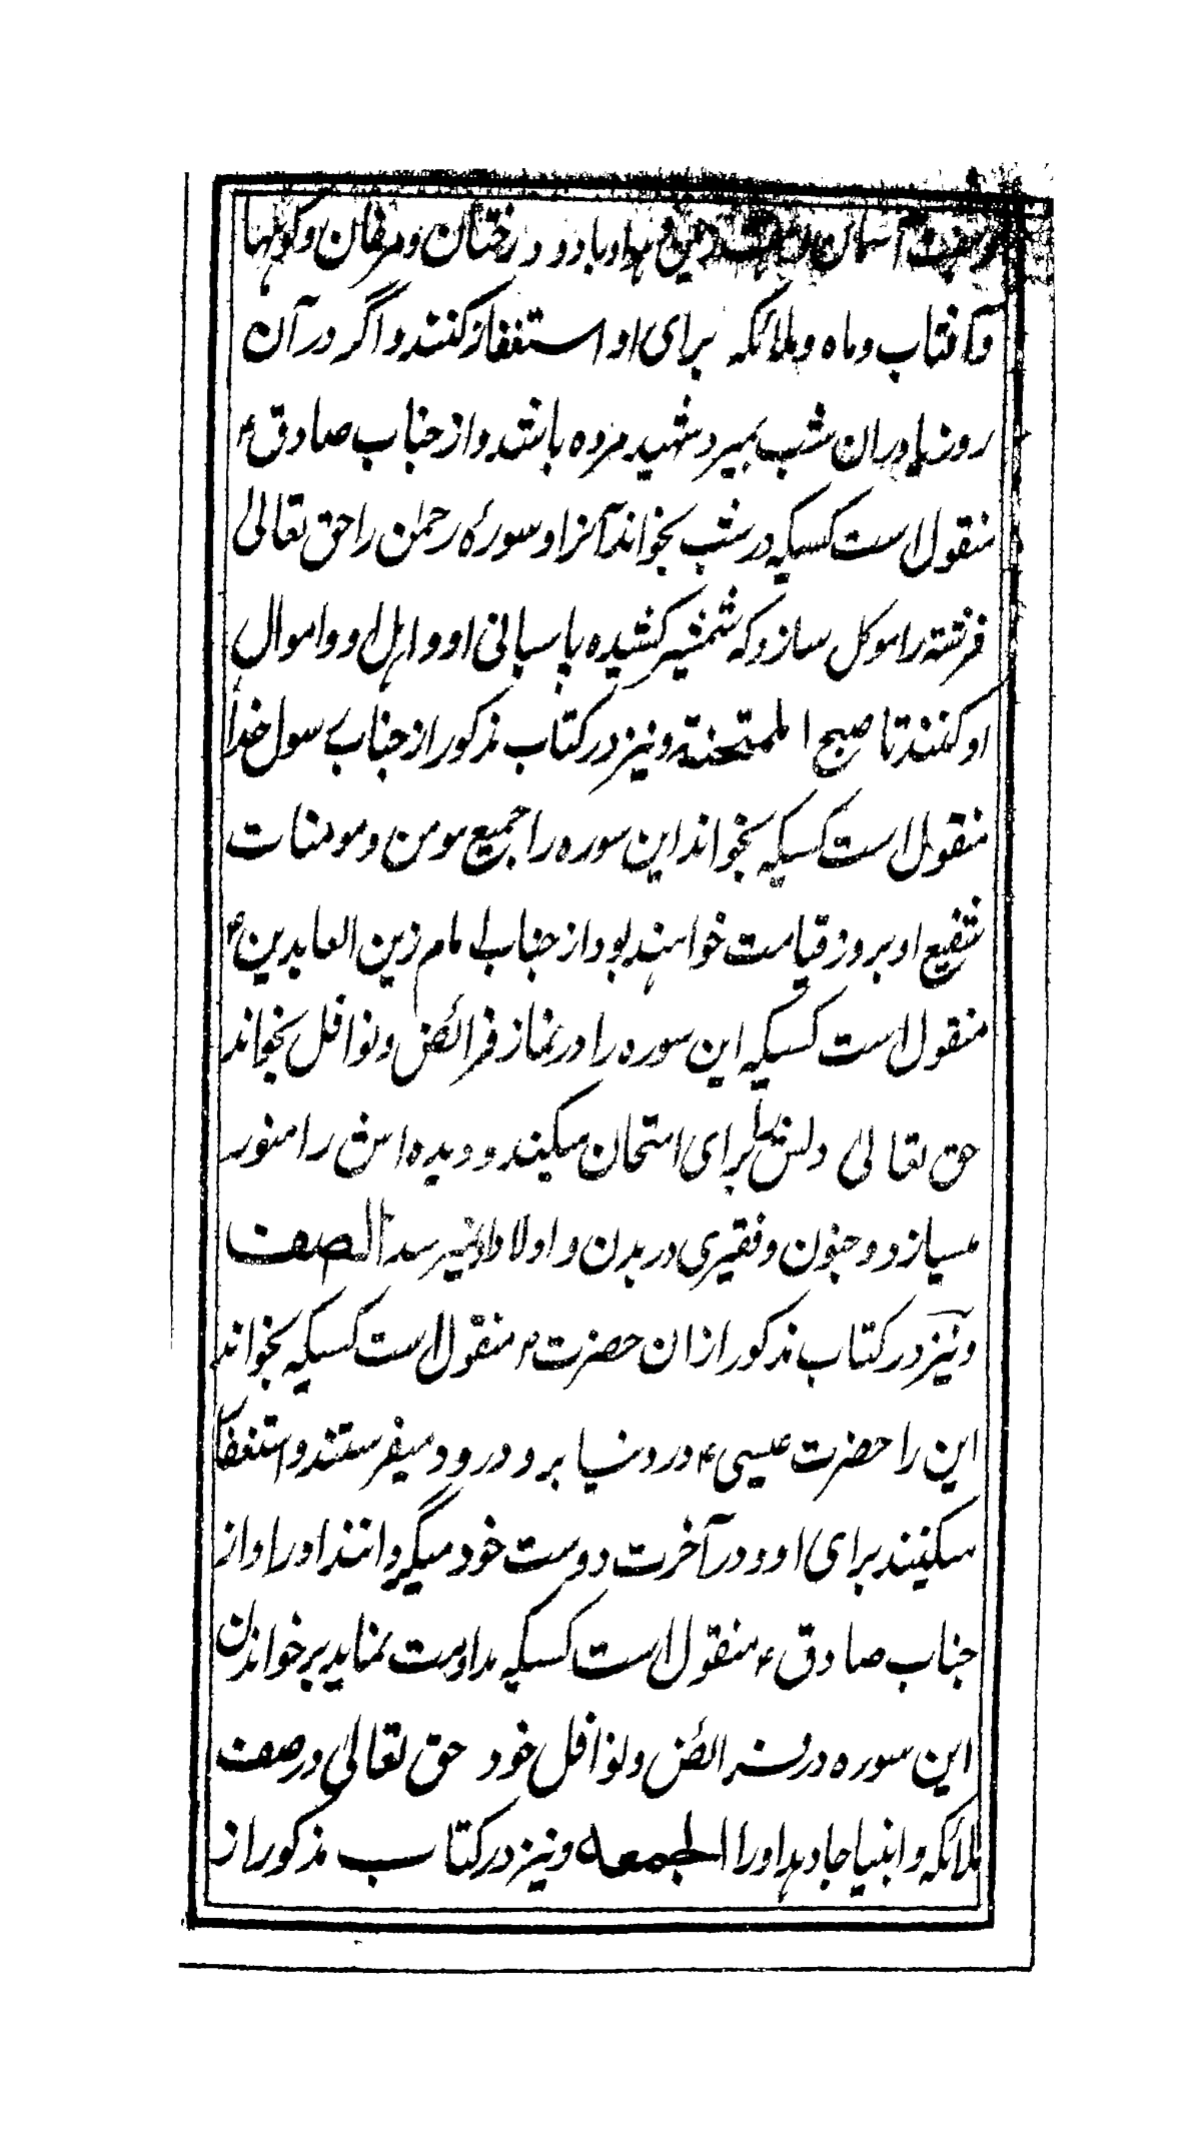 آسمان و هفت زمین و هوا و باد و درختان و مرغان و کوهها
و آفتاب و ماه و ملائکه برای او استغفار کنند و اگر در آن
روز یا دران شب بمیرد شهید مرده باشد و از جناب صادق ع
منقول است کسیکه در شب بخواند آنرا و سورهٔ رحمٰن را حق تعالی
فرشته را موکل سازد که شمشیر کشیده پاسبانی او و اہل او و اموال
او کنند تا صبح الممتحنة و نیز در کتاب مذکور از جناب رسول خدا
منقول است کسیکه بخواند این سوره را جمیع مومن و مومنات
شفیع او بروز قیامت خواہند بود از جناب امام زین العابدین ع
منقول است کسیکه این سوره را در نماز فرائض و نوافل بخواند
حق تعالی دلش برای امتحان میکند و دیده اش را منور
میسازد و جنون و فقیری در بدن و اولاد او نمیرسد الصف
و نیز در کتاب مذکور ازان حضرت ع منقول است کسیکه بخواند
این را حضرت عیسی ع در دنیا بر و درود میفرستند و استغفا
میکنند برای او و در آخرت دوست خود میگردانند او را و از
جناب صادق ع منقول است کسیکه مداومت نماید بر خواندن
این سوره در فرائض و نوافل خود حق تعالی در صف
ملائکه و انبیا جا دہد او را الجمعه و نیز در کتاب مذکور از